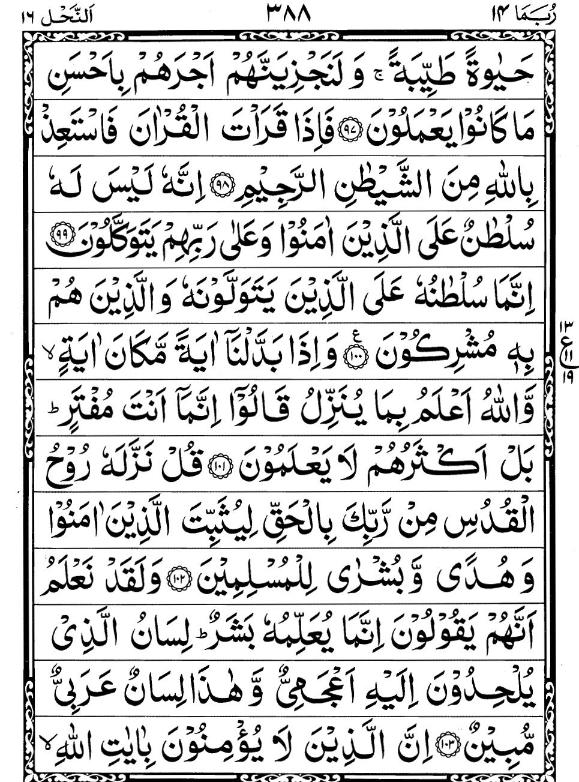 رُبَمَا ١٤ ٣٨٨ اَلنَّحْل ١٦
حَيٰوةً طَيِّبَةً ۚ وَ لَنَجْزِيَنَّهُمْ اَجْرَهُمْ بِاَحْسَنِ
مَا كَانُوْا يَعْمَلُوْنَ ﴿٩٧﴾ فَاِذَا قَرَاْتَ الْقُرْاٰنَ فَاسْتَعِذْ
بِاللّٰهِ مِنَ الشَّيْطٰنِ الرَّجِيْمِ ﴿٩٨﴾ اِنَّهٗ لَيْسَ لَهٗ
سُلْطٰنٌ عَلَى الَّذِيْنَ اٰمَنُوْا وَ عَلٰى رَبِّهِمْ يَتَوَكَّلُوْنَ ﴿٩٩﴾
اِنَّمَا سُلْطٰنُهٗ عَلَى الَّذِيْنَ يَتَوَلَّوْنَهٗ وَ الَّذِيْنَ هُمْ
بِهٖ مُشْرِكُوْنَ ﴿١٠٠﴾ ع وَ اِذَا بَدَّلْنَاۤ اٰيَةً مَّكَانَ اٰيَةٍ ۙ
١٣ ع ١١ ١٩
وَّ اللّٰهُ اَعْلَمُ بِمَا يُنَزِّلُ قَالُوْۤا اِنَّمَاۤ اَنْتَ مُفْتَرٍ ؕ
بَلْ اَكْثَرُهُمْ لَا يَعْلَمُوْنَ ﴿١٠١﴾ قُلْ نَزَّلَهٗ رُوْحُ
الْقُدُسِ مِنْ رَّبِّكَ بِالْحَقِّ لِيُثَبِّتَ الَّذِيْنَ اٰمَنُوْا
وَ هُدًى وَّ بُشْرٰى لِلْمُسْلِمِيْنَ ﴿١٠٢﴾ وَ لَقَدْ نَعْلَمُ
اَنَّهُمْ يَقُوْلُوْنَ اِنَّمَا يُعَلِّمُهٗ بَشَرٌ ؕ لِسَانُ الَّذِيْ
يُلْحِدُوْنَ اِلَيْهِ اَعْجَمِيٌّ وَّ هٰذَا لِسَانٌ عَرَبِيٌّ
مُّبِيْنٌ ﴿١٠٣﴾ اِنَّ الَّذِيْنَ لَا يُؤْمِنُوْنَ بِاٰيٰتِ اللّٰهِ ۙ